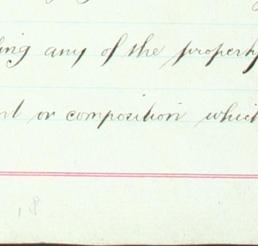 ing any of the property
nt or composition which
18